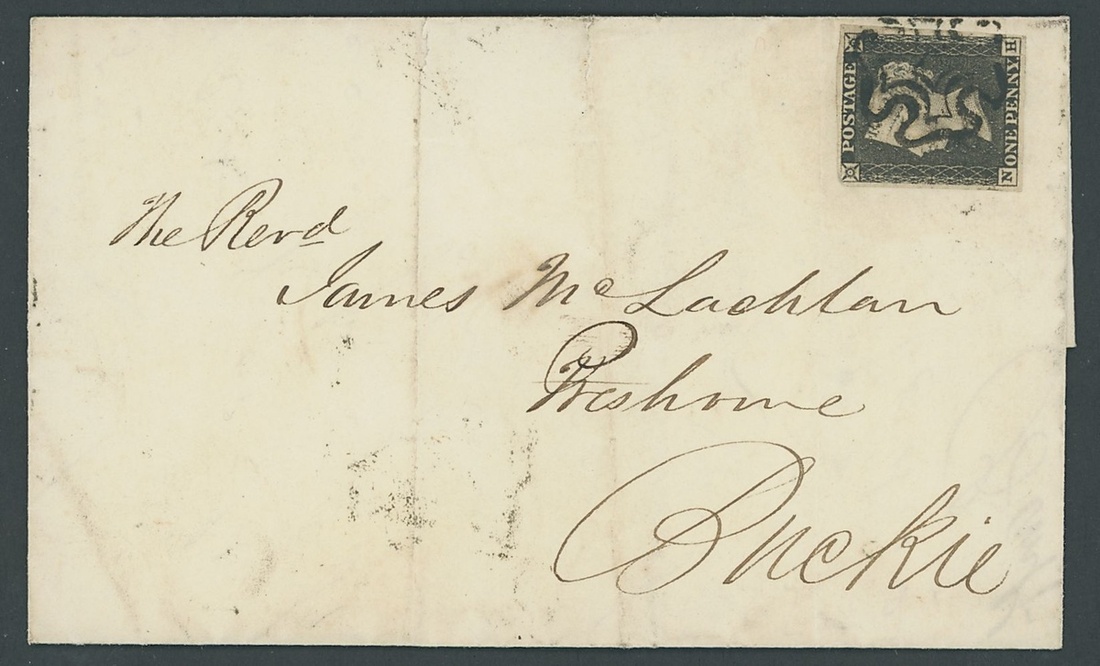 POSTAGE
ONE PENNY
N H
The Revd
James Mc Lachlan
Preshome
Buckie